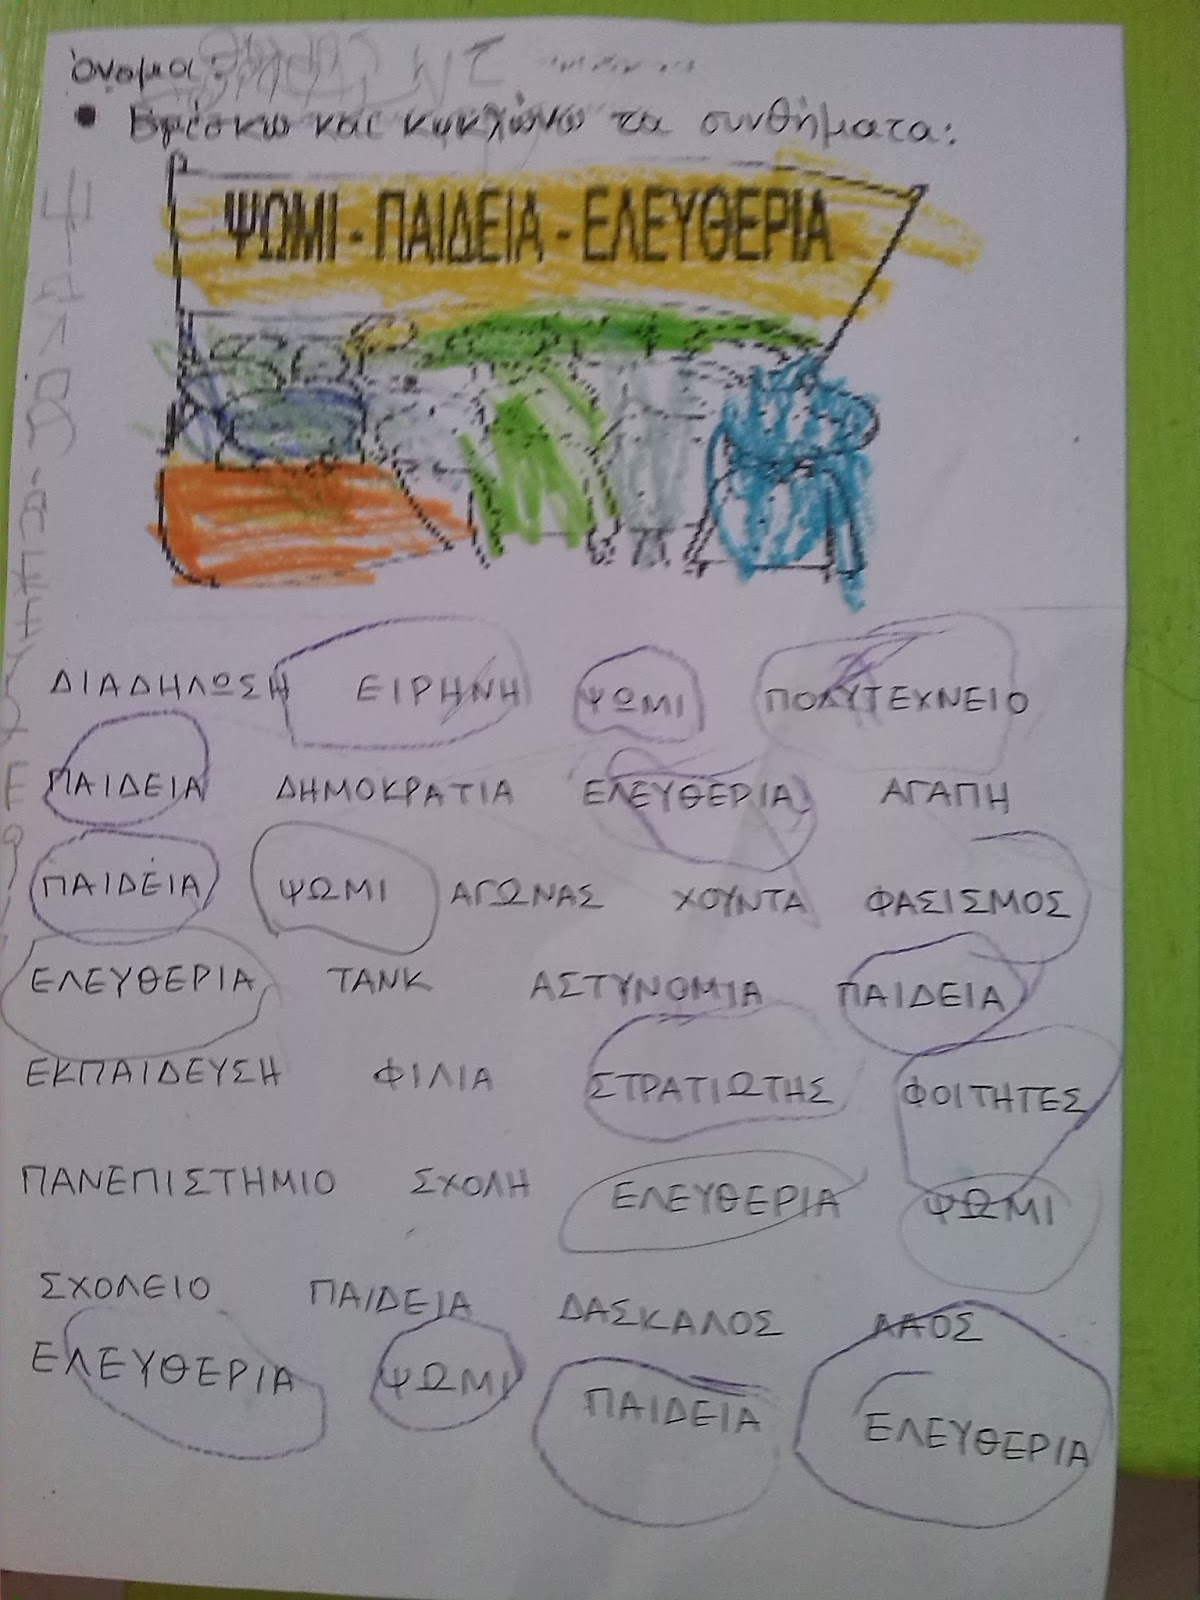 όνομα:
• Βρίσκω και κυκλώνω τα συνθήματα:
ΨΩΜΙ - ΠΑΙΔΕΙΑ - ΕΛΕΥΘΕΡΙΑ
ΔΙΑΔΗΛΩΣΗ ΕΙΡΗΝΗ ΨΩΜΙ ΠΟΛΥΤΕΧΝΕΙΟ
ΠΑΙΔΕΙΑ ΔΗΜΟΚΡΑΤΙΑ ΕΛΕΥΘΕΡΙΑ ΑΓΑΠΗ
ΠΑΙΔΕΙΑ ΨΩΜΙ ΑΓΩΝΑΣ ΧΟΥΝΤΑ ΦΑΣΙΣΜΟΣ
ΕΛΕΥΘΕΡΙΑ ΤΑΝΚ ΑΣΤΥΝΟΜΙΑ ΠΑΙΔΕΙΑ
ΕΚΠΑΙΔΕΥΣΗ ΦΙΛΙΑ ΣΤΡΑΤΙΩΤΗΣ ΦΟΙΤΗΤΕΣ
ΠΑΝΕΠΙΣΤΗΜΙΟ ΣΧΟΛΗ ΕΛΕΥΘΕΡΙΑ ΨΩΜΙ
ΣΧΟΛΕΙΟ ΠΑΙΔΕΙΑ ΔΑΣΚΑΛΟΣ ΛΑΟΣ
ΕΛΕΥΘΕΡΙΑ ΨΩΜΙ ΠΑΙΔΕΙΑ ΕΛΕΥΘΕΡΙΑ